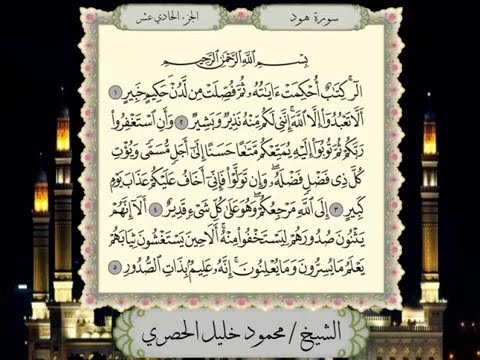 الجزء الحادي عشر
سورة هود
بِسْمِ اللَّهِ الرَّحْمَٰنِ الرَّحِيمِ
الٓر ۚ كِتَٰبٌ أُحْكِمَتْ ءَايَٰتُهُۥ ثُمَّ فُصِّلَتْ مِن لَّدُنْ حَكِيمٍ خَبِيرٍ ١
أَلَّا تَعْبُدُوٓا۟ إِلَّا ٱللَّهَ ۚ إِنَّنِى لَكُم مِّنْهُ نَذِيرٌ وَبَشِيرٌ ٢ وَأَنِ ٱسْتَغْفِرُوا۟
رَبَّكُمْ ثُمَّ تُوبُوٓا۟ إِلَيْهِ يُمَتِّعْكُم مَّتَٰعًا حَسَنًا إِلَىٰٓ أَجَلٍ مُّسَمًّى وَيُؤْتِ
كُلَّ ذِى فَضْلٍ فَضْلَهُۥ ۖ وَإِن تَوَلَّوْا۟ فَإِنِّىٓ أَخَافُ عَلَيْكُمْ عَذَابَ يَوْمٍ
كَبِيرٍ ٣ إِلَى ٱللَّهِ مَرْجِعُكُمْ ۖ وَهُوَ عَلَىٰ كُلِّ شَىْءٍ قَدِيرٌ ٤ أَلَآ إِنَّهُمْ
يَثْنُونَ صُدُورَهُمْ لِيَسْتَخْفُوا۟ مِنْهُ ۚ أَلَا حِينَ يَسْتَغْشُونَ ثِيَابَهُمْ
يَعْلَمُ مَا يُسِرُّونَ وَمَا يُعْلِنُونَ ۚ إِنَّهُۥ عَلِيمٌۢ بِذَاتِ ٱلصُّدُورِ ٥
الشيخ / محمود خليل الحصري